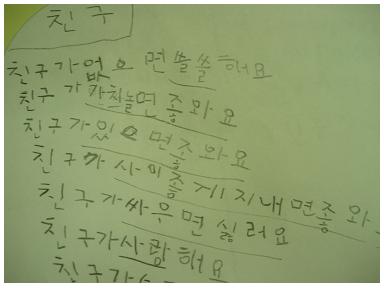 친구
친구가없으면쓸쓸해요
친구가 같치놀면 좋와요
친구가있으면좋와요
친구가사이좋게지내면좋와
친구가싸우면 싫러요
친구가사랑해요
친구가